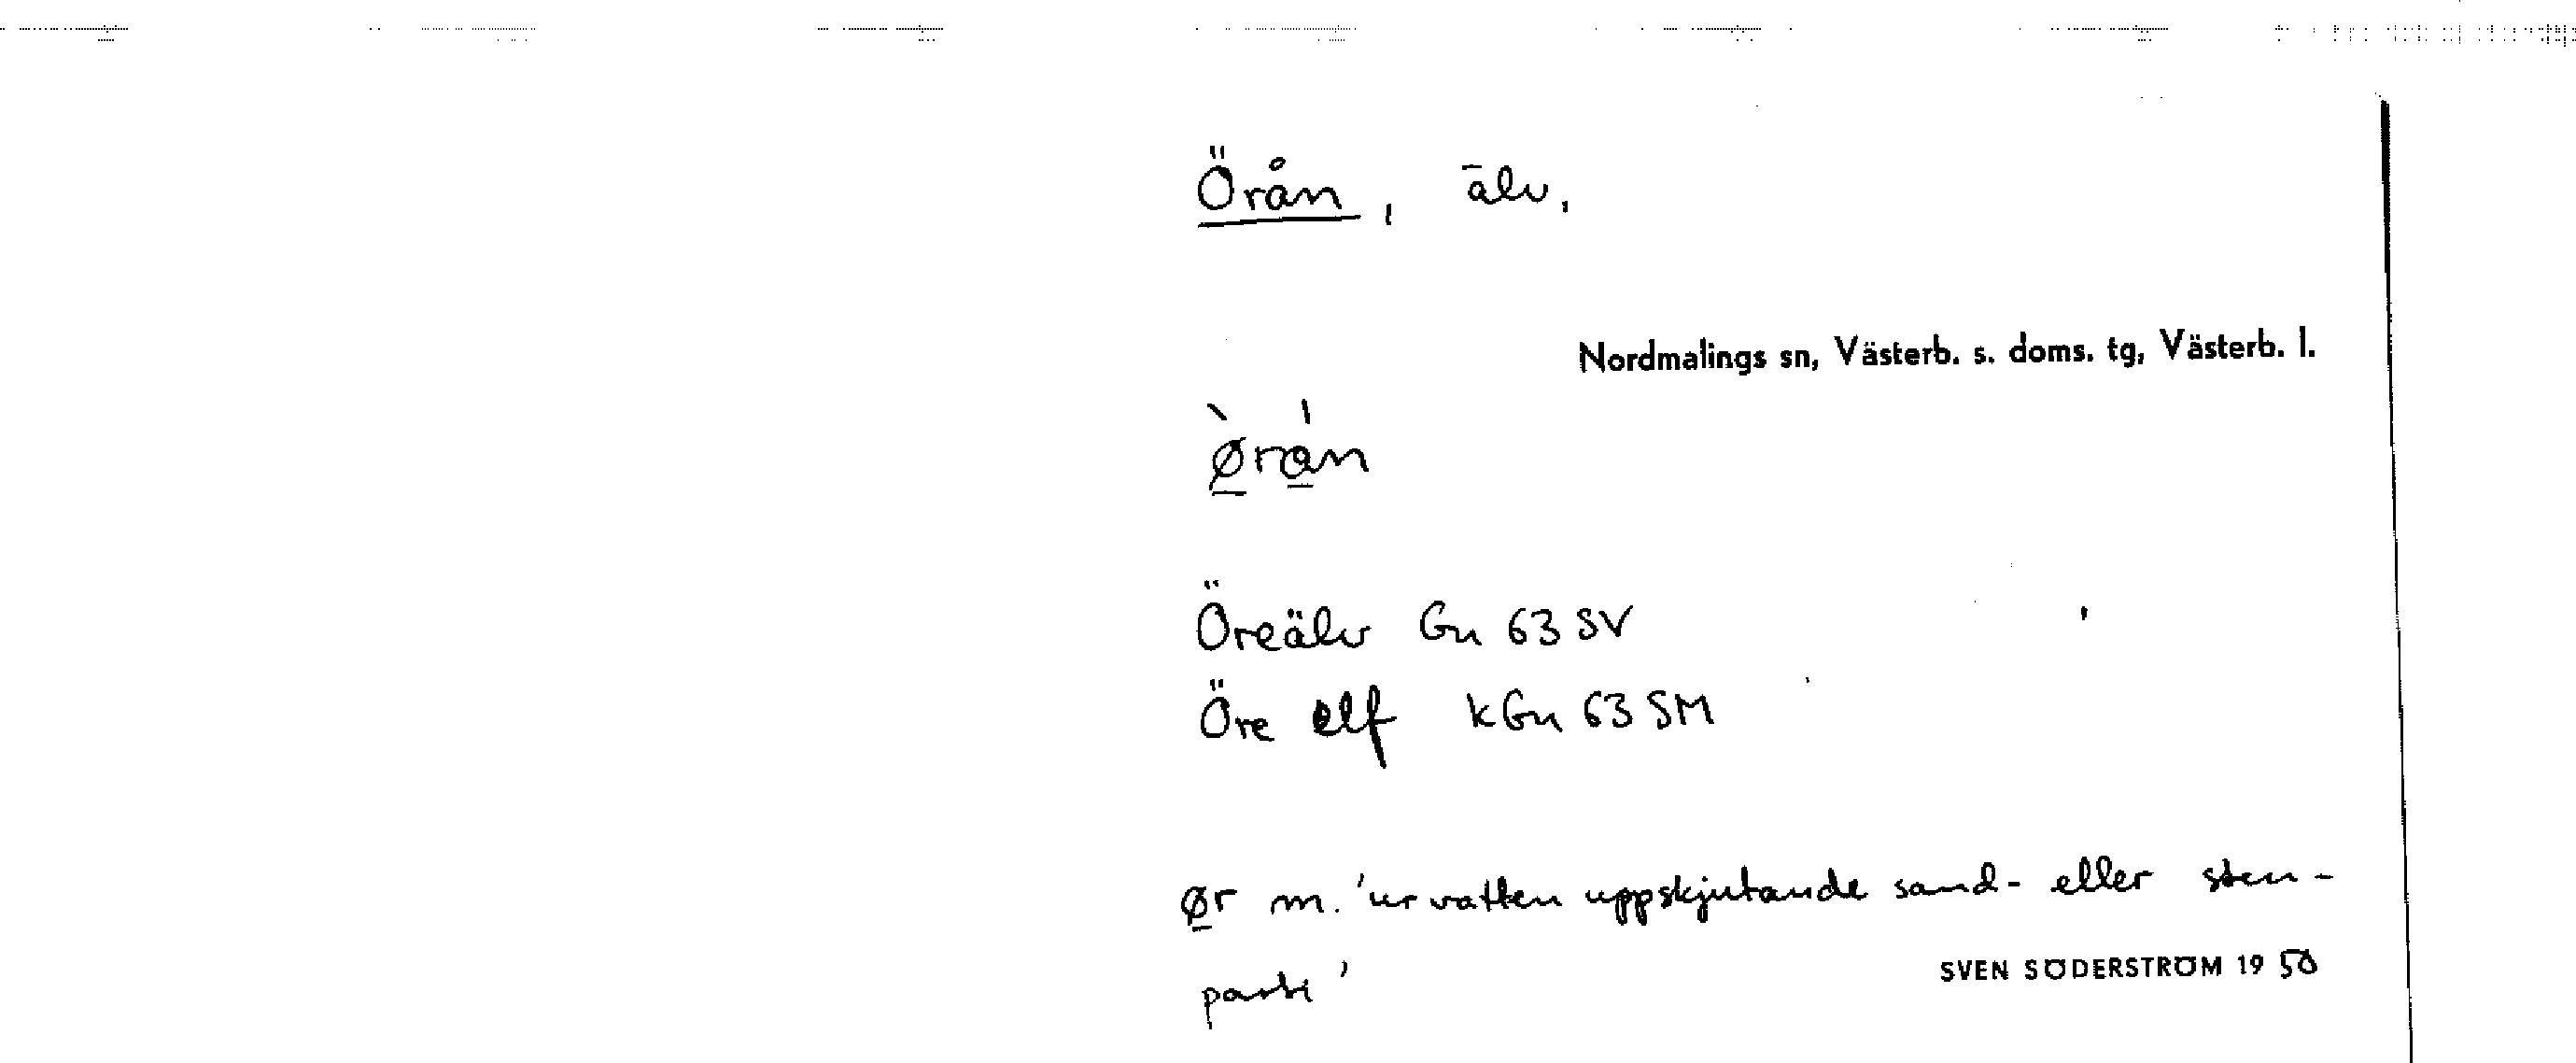 Örån, älv,
Nordmalings sn, Västerb. s. doms. tg, Västerb. l.
Ø̱̀rǻ̱n
Öreälv Gn 63 SV
Öre elf kGn 63 SM
ø̱r m. 'ur vatten uppskjutande sand- eller sten-
parti'
SVEN SÖDERSTRÖM 1950